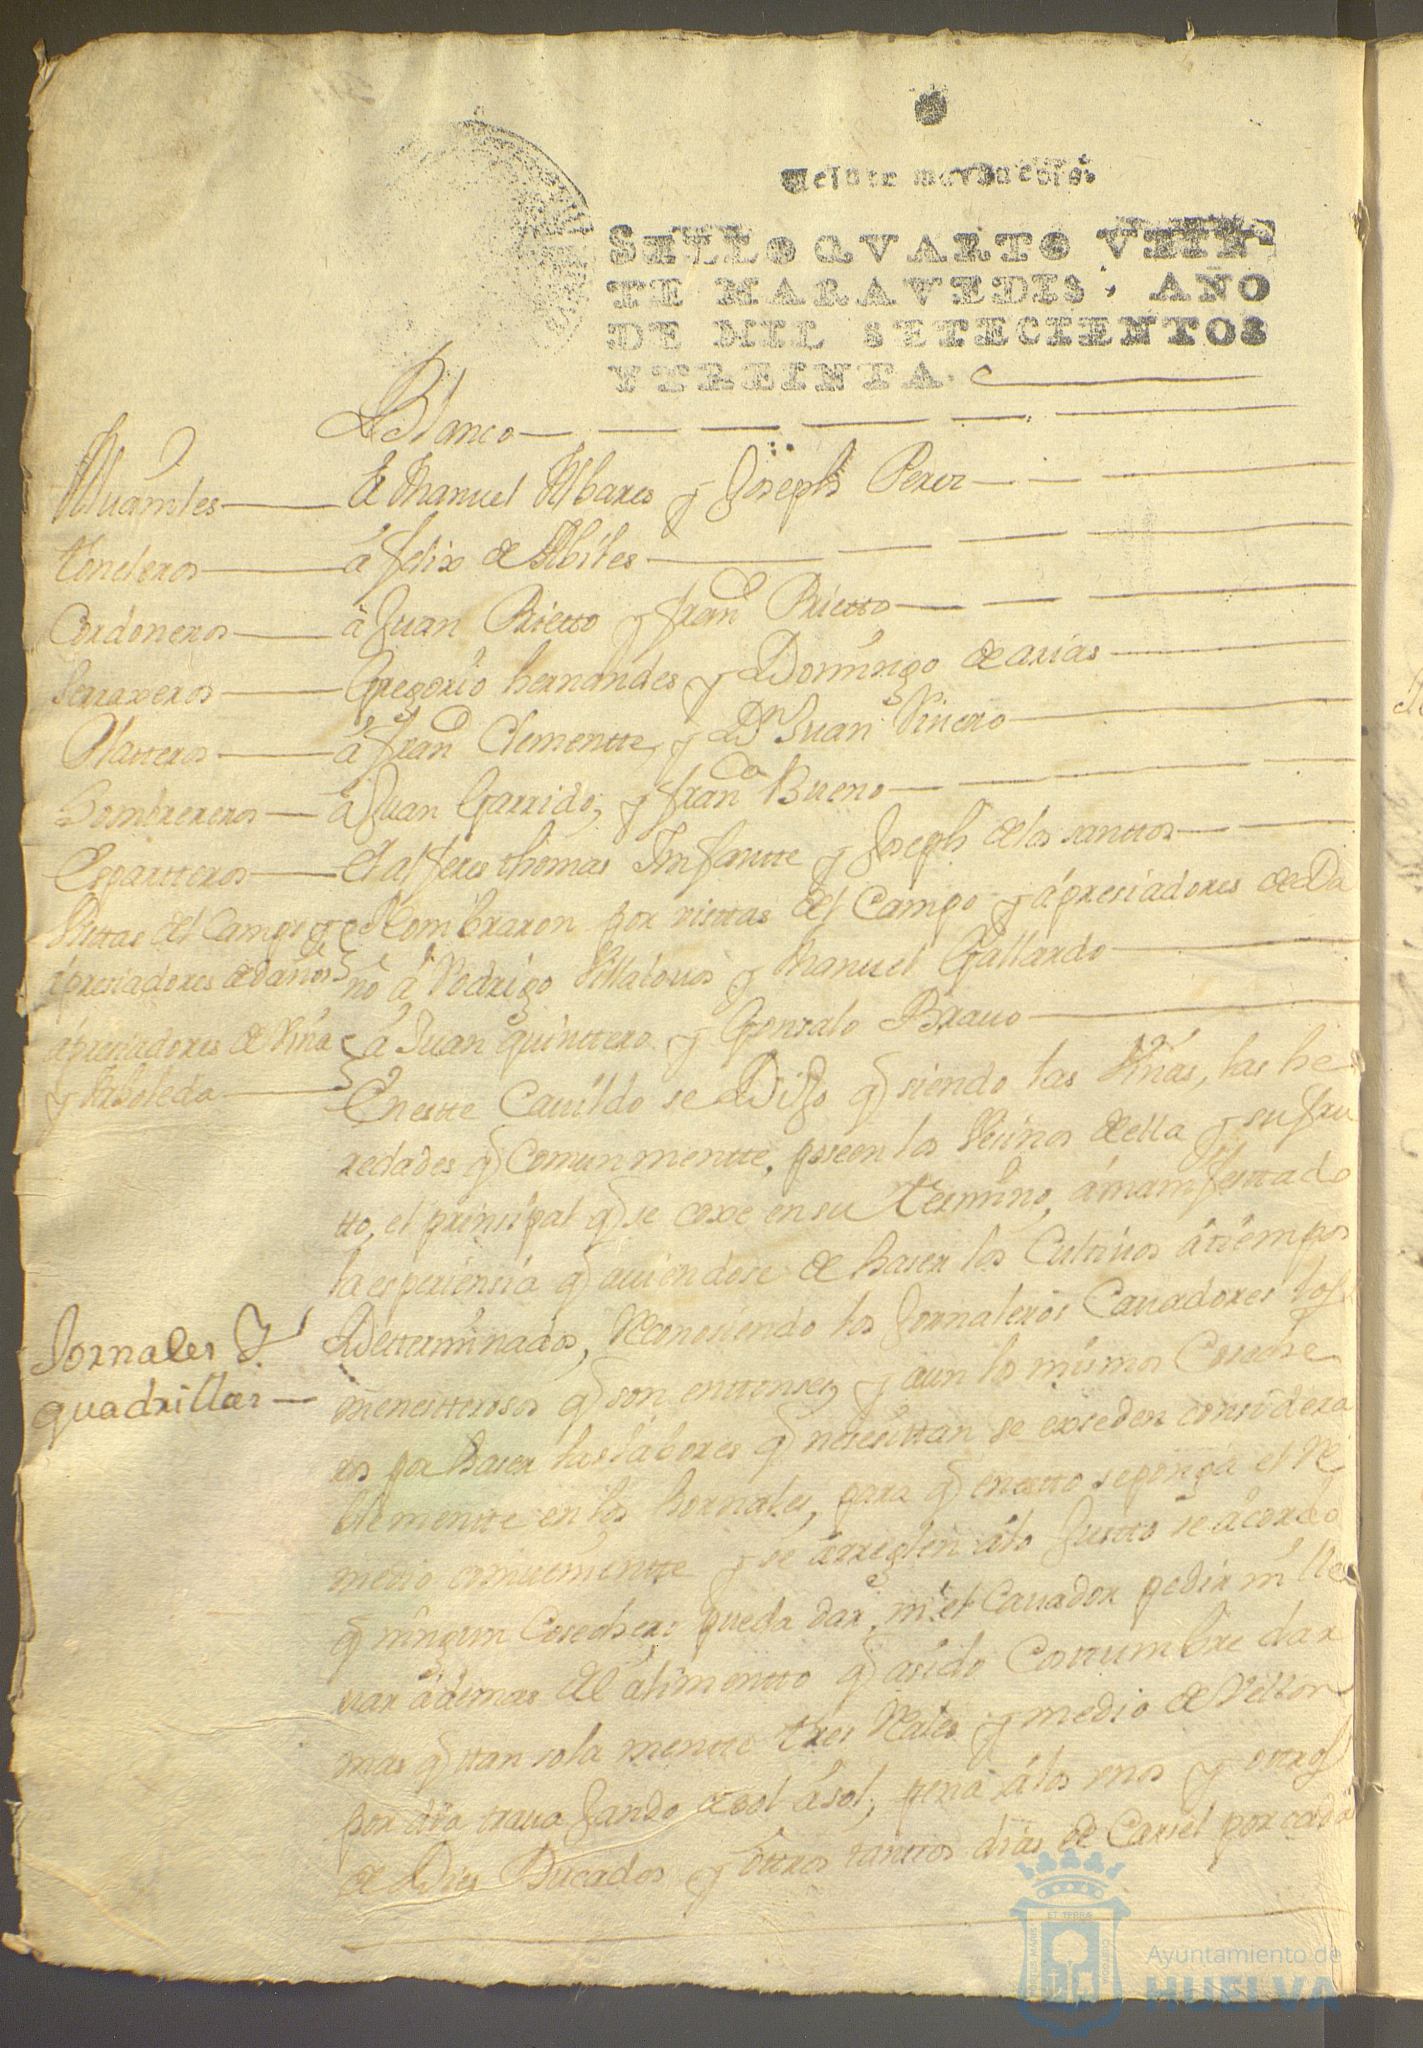 Veinte maravedis.
SELLO QVARTO VEIN-
TE MARAVEDIS, AÑO
DE MIL SETECIENTOS
Y TREINTA.
Blanco
de Manuel Albares y Joseph Perez
toneleros â felix de Abiles
Cordoneros â Juan Prietto y fran.co Prietto
Serraxeros Gregorio hernandes y Domingo de arias
Platteros â fran.co Clementte, y Dn Juan Pinero
Sombrereros â Juan Garrido, y fran.co Bueno
Espartteros el alferes thomas Infantte y Joseph de los santtos
Visttas del Campo y Nombraron por visttas del Campo y apresiadores de Da
apresiadores de daños ño â Rodrigo Villalouos y Manuel Gallardo
apresiadores de Viña â Juan quinttero y Gonsalo Brauo
y Arboleda
En estte Cauildo se Dijo q siendo las Viñas, las he
redades q Comunmentte, poseen los Vecinos della y su fru
tto, el prinsipal q se coxe en su termino, â manifesttado
la esperiensia q auiendose de haser los Cultiuos a tiempos
Dettermínados, Reconosiendo los Jornaleros Cauadores los
Jornales Y
quadrillas
menestterosos q son enttonses, y aun lo mismos Coseche
ros por haser las labores q nesesittan se exseden considera
blementte en los hornales, para q en estto se ponga el Re
medio combenientte y se arreglen alo Justto se acordo
q ningun Cosechero pueda dar, ni el Cauador pedir ni lle
uar ademas del alimentto q asido Costtumbre dar
mas q ttan sola mentte tres Reales y medio de Vellon
por dia trauajando de sol â sol, pena â los unos y ottros
de Dies Ducados y ottros tanttos dias de Carsel por cada
Ayuntamiento de
HUELVA